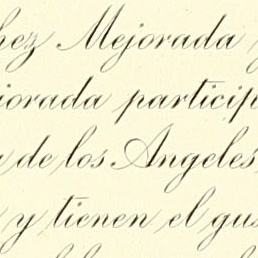 hez Mejorada y
jorada particip
de los Angeles
y tienen el gus